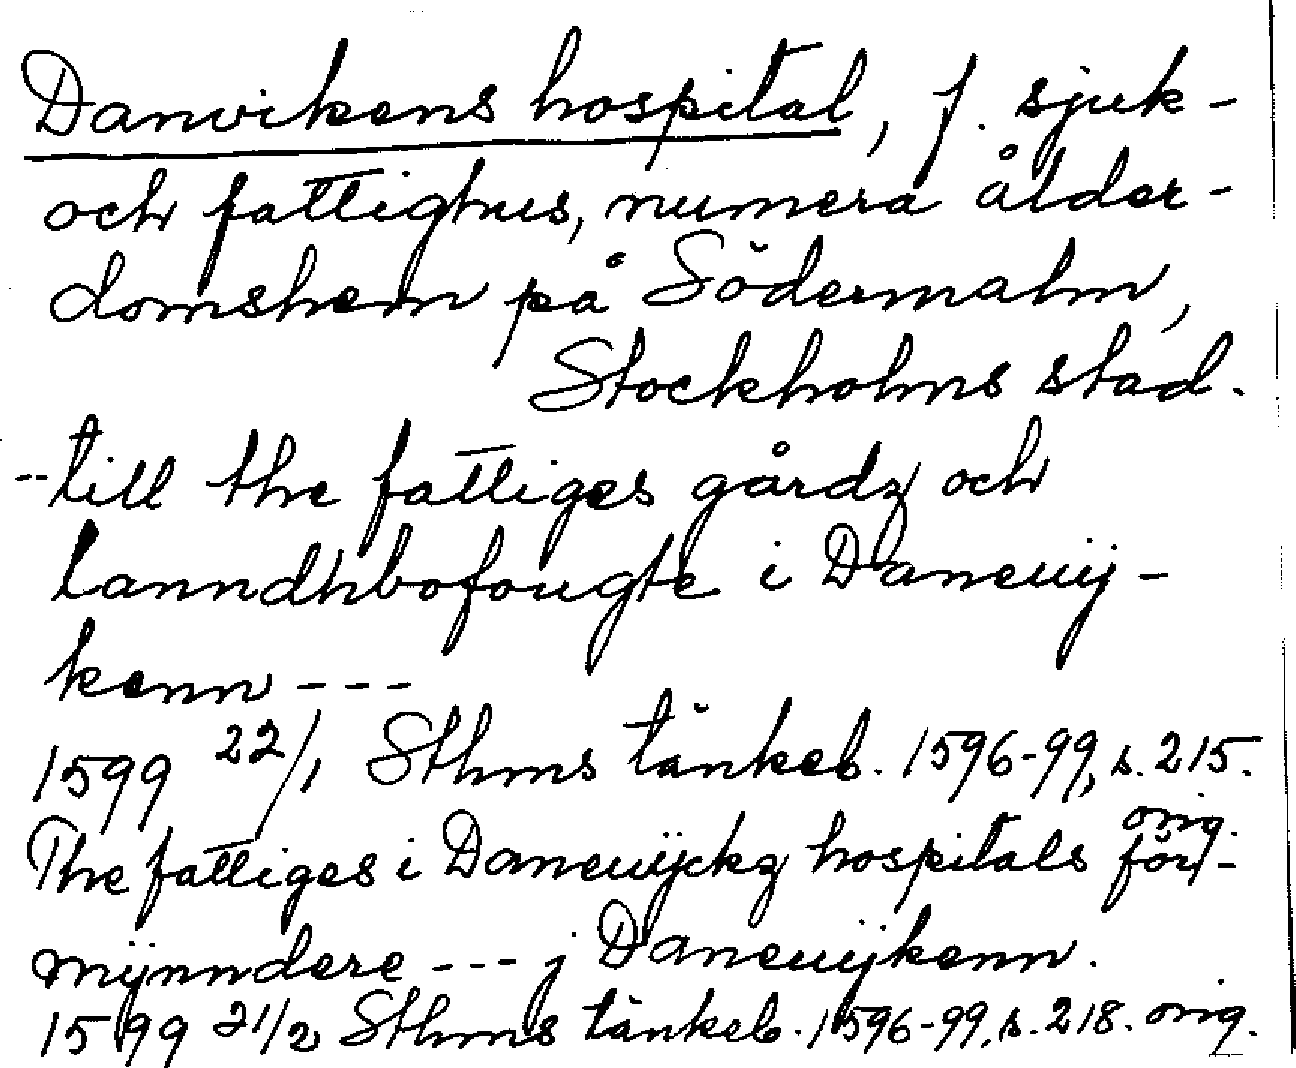 Danvikens hospital, f. sjuk-
och fattighus, numera ålder-
domshem på Södermalm,
Stockholms stad.
--till the fattiges gårdz och
lanndhbofougte i Daneuij-
kenn ---
1599 22/1 Sthms tänkeb. 1596-99, s. 215.
orig.
The fattiges i Daneuijckz hospitals för-
mÿnndere --- j Daneuijkenn.
1599 21/2 Sthms tänkeb. 1596-99, s. 218. orig.